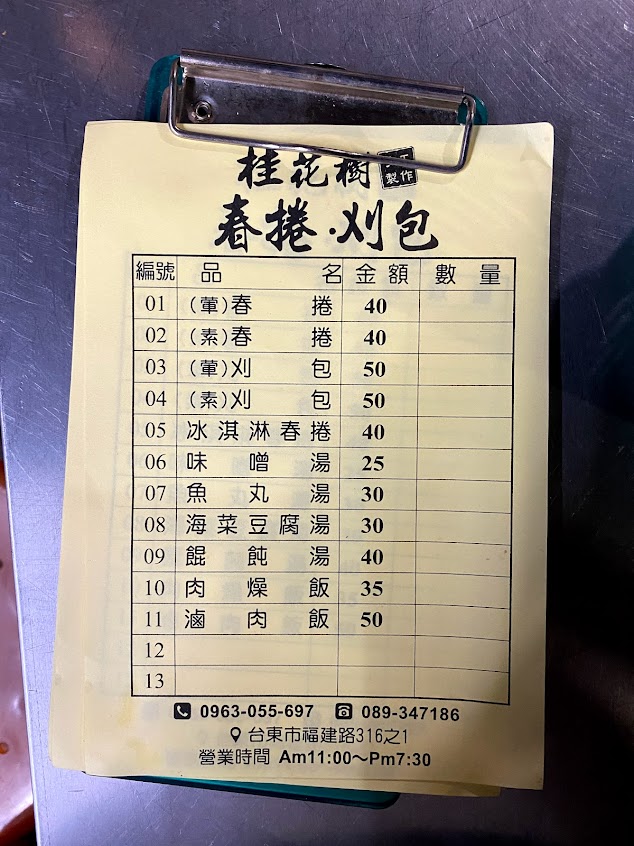 桂花樹 製作
春捲·刈包
編號 品名 金額 數量
01 (葷)春捲 40
02 (素)春捲 40
03 (葷)刈包 50
04 (素)刈包 50
05 冰淇淋春捲 40
06 味噌湯 25
07 魚丸湯 30
08 海菜豆腐湯 30
09 餛飩湯 40
10 肉燥飯 35
11 滷肉飯 50
12
13
0963-055-697 089-347186
台東市福建路316之1
營業時間 Am11:00～Pm7:30